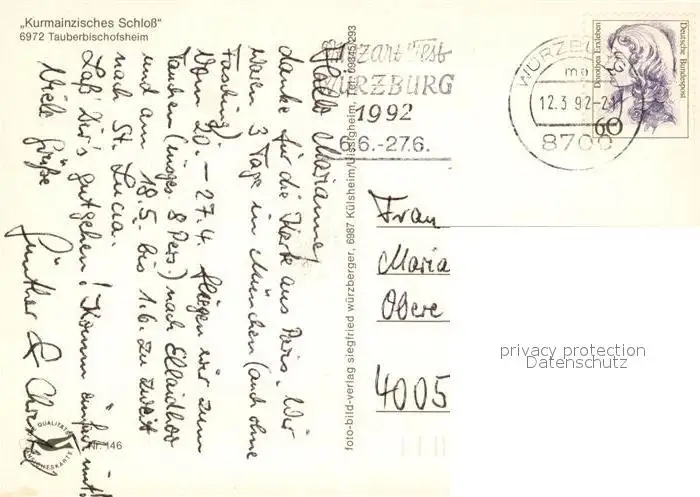 „Kurmainzisches Schloß"
6972 Tauberbischofsheim
Hallo Marianne,
danke für die Karte aus Paris. Wir
waren 3 Tage in München (auch ohne
Fasching)
Vom 20. – 27.4. fliegen wir zum
Tauchen (insges. 8 Pers.) nach Ellaidhoo
und am 18.5. bis 1.6. zu zweit
nach St. Lucia.
Laß Dir's gutgehen! Komm einfach mit!
Viele Grüße
Günther & Christel
QUALITÄTS
ANSICHTSKARTE
Nr. 146
foto-bild-verlag siegfried würzberger, 6987 Külsheim/Uissigheim, Tel. 09345/293
Mozartfest
WÜRZBURG
1992
6.6.-27.6.
WÜRZBURG
12.3.92-21
8700
Dorothea Erxleben
Deutsche Bundespost
60
Frau
Maria
Obere
4005
privacy protection
Datenschutz